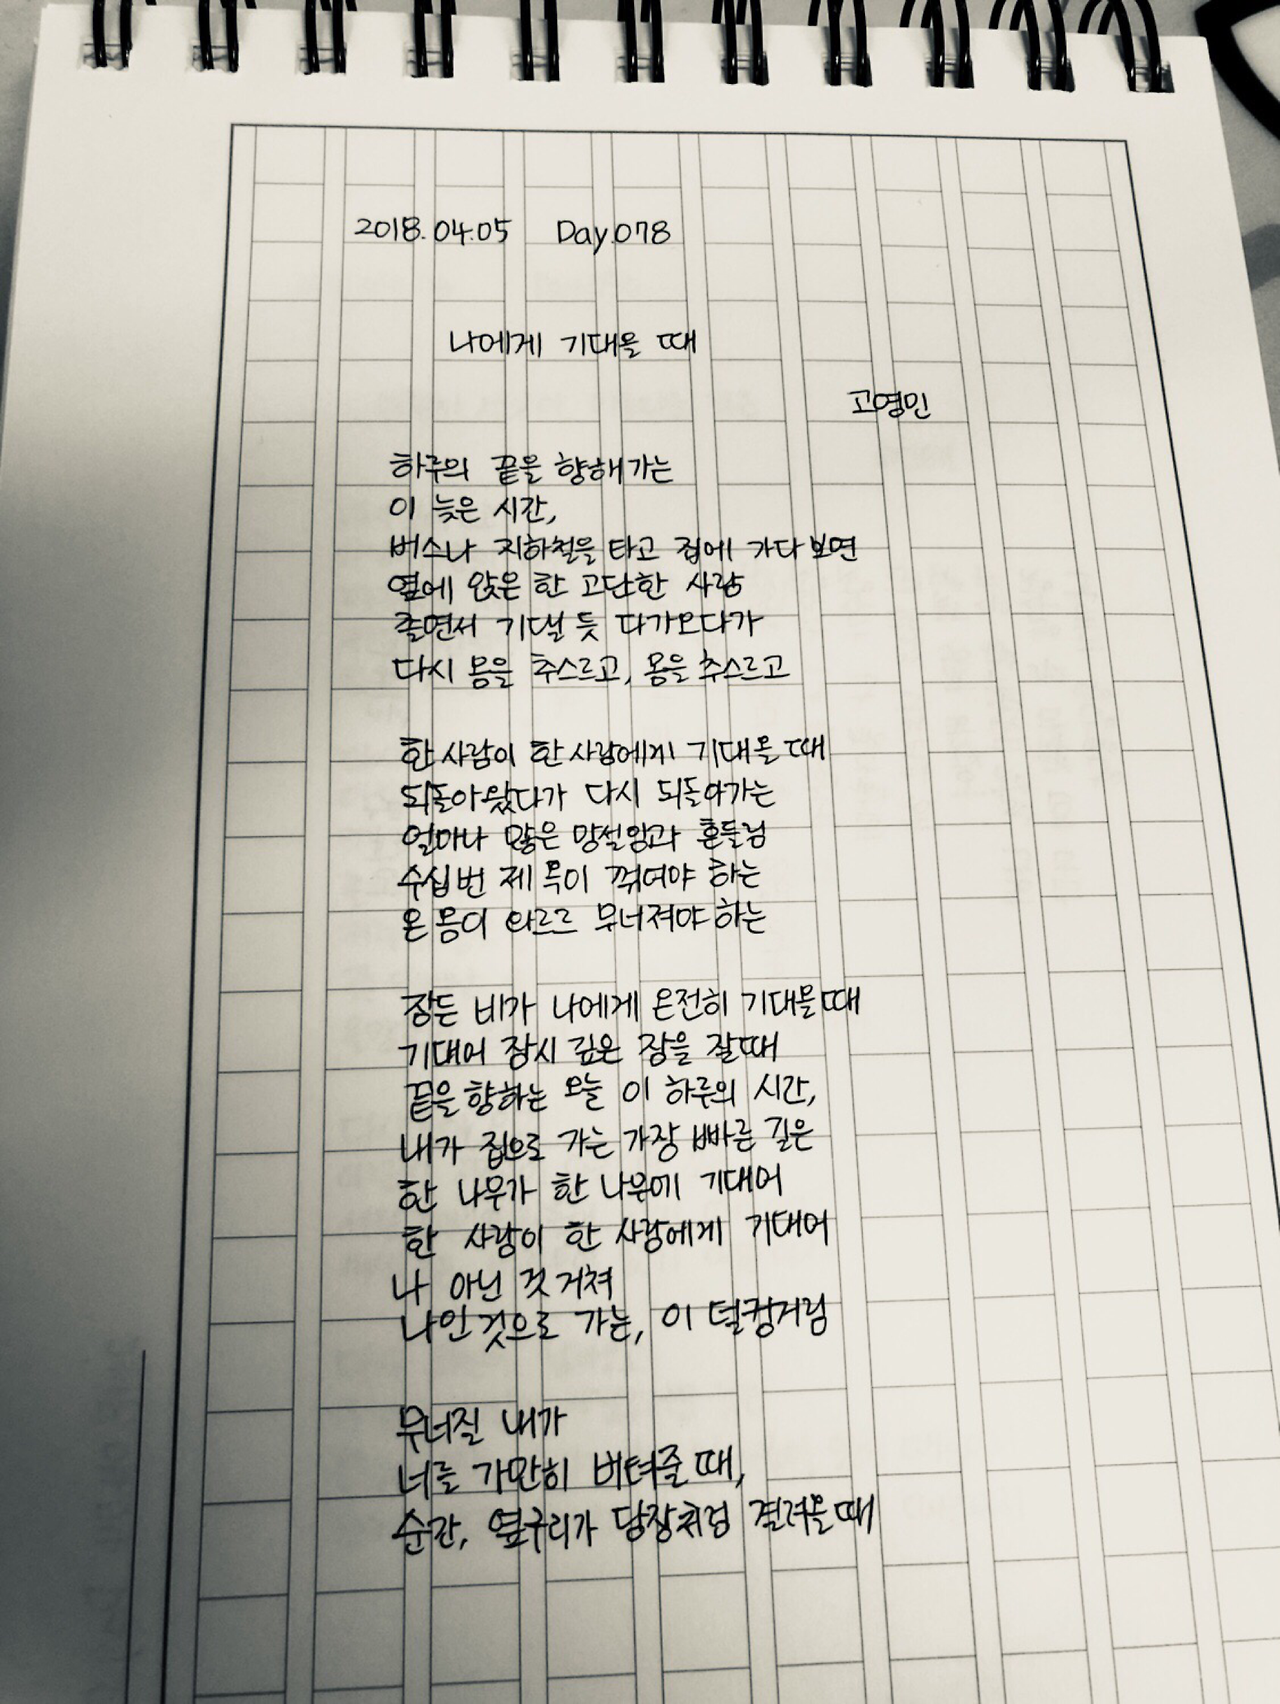 2018.04.05 Day.078
나에게 기대올 때
고영민
하루의 끝을 향해 가는
이 늦은 시간,
버스나 지하철을 타고 집에 가다 보면
옆에 앉은 한 고단한 사람
졸면서 기댈 듯 다가오다가
다시 몸을 추스르고, 몸을 추스르고
한 사람이 한 사람에게 기대올 때
되돌아왔다가 다시 되돌아가는
얼마나 많은 망설임과 흔들림
수십 번 제 목이 꺾여야 하는
온몸이 와르르 무너져야 하는
잠든 네가 나에게 온전히 기대올 때
기대어 잠시 깊은 잠을 잘 때
끝을 향하는 오늘 이 하루의 시간,
내가 집으로 가는 가장 빠른 길은
한 나무가 한 나무에 기대어
한 사람이 한 사람에게 기대어
나 아닌 것 거쳐
나인 것으로 가는, 이 덜컹거림
무너질 내가
너를 가만히 버텨줄 때,
순간, 옆구리가 담장처럼 결려올 때